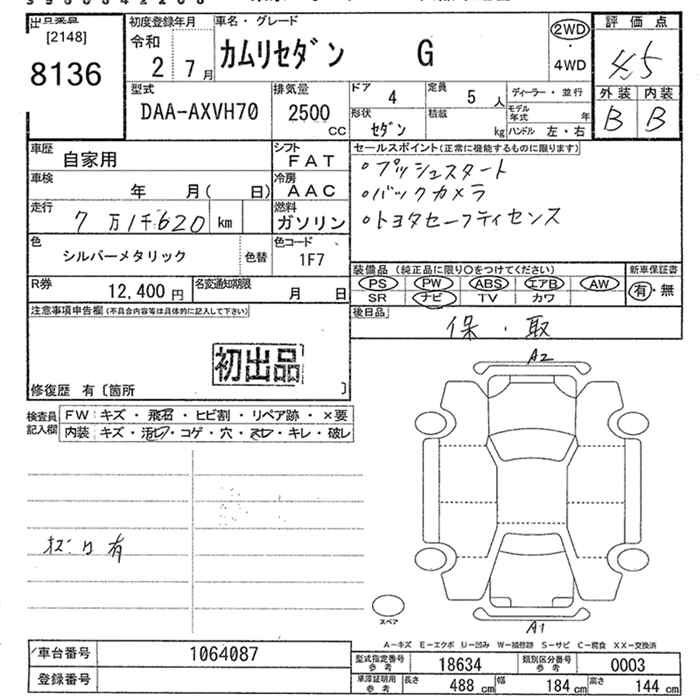 [2148]
8136
初度登録年月
令和
2 7月
車名・グレード
カムリセダン G
2WD
・
4WD
評価点
外装 内装
B B
型式
DAA-AXVH70
排気量
2500
CC
ドア
4
定員
5 人
形状
セダン
積載
kg
ディーラー・並行
モデル年式 年
ハンドル 左・右
車歴
自家用
シフト
FAT
車検
年 月( 日)
冷房
AAC
走行
7万1千620 km
燃料
ガソリン
色
シルバーメタリック
色替
色コード
1F7
R券
12,400円
名変通知期限
月 日
セールスポイント(正常に機能するものに限ります)
・プッシュスタート
・バックカメラ
・トヨタセーフティセンス
装備品 (純正品に限り○をつけてください)
PS PW ABS エアB AW
SR ナビ TV カワ
新車保証書
有・無
後日品
保・取
注意事項申告欄(不具合内容等は具体的に記入して下さい)
初出品
修復歴 有〔箇所 〕
検査員記入欄
FW: キズ・飛石・ヒビ割・リペア跡・×要
内装: キズ・汚れ・コゲ・穴・スレ・キレ・破レ
有
A2
A1
スペア
A-キズ E-エクボ U-凹み W-補修跡 S-サビ C-腐食 XX-交換済
車台番号
1064087
登録番号
型式指定番号
参考
18634
類別区分番号
参考
0003
車庫証明用
参考
長さ
488 cm
幅
184 cm
高さ
144 cm